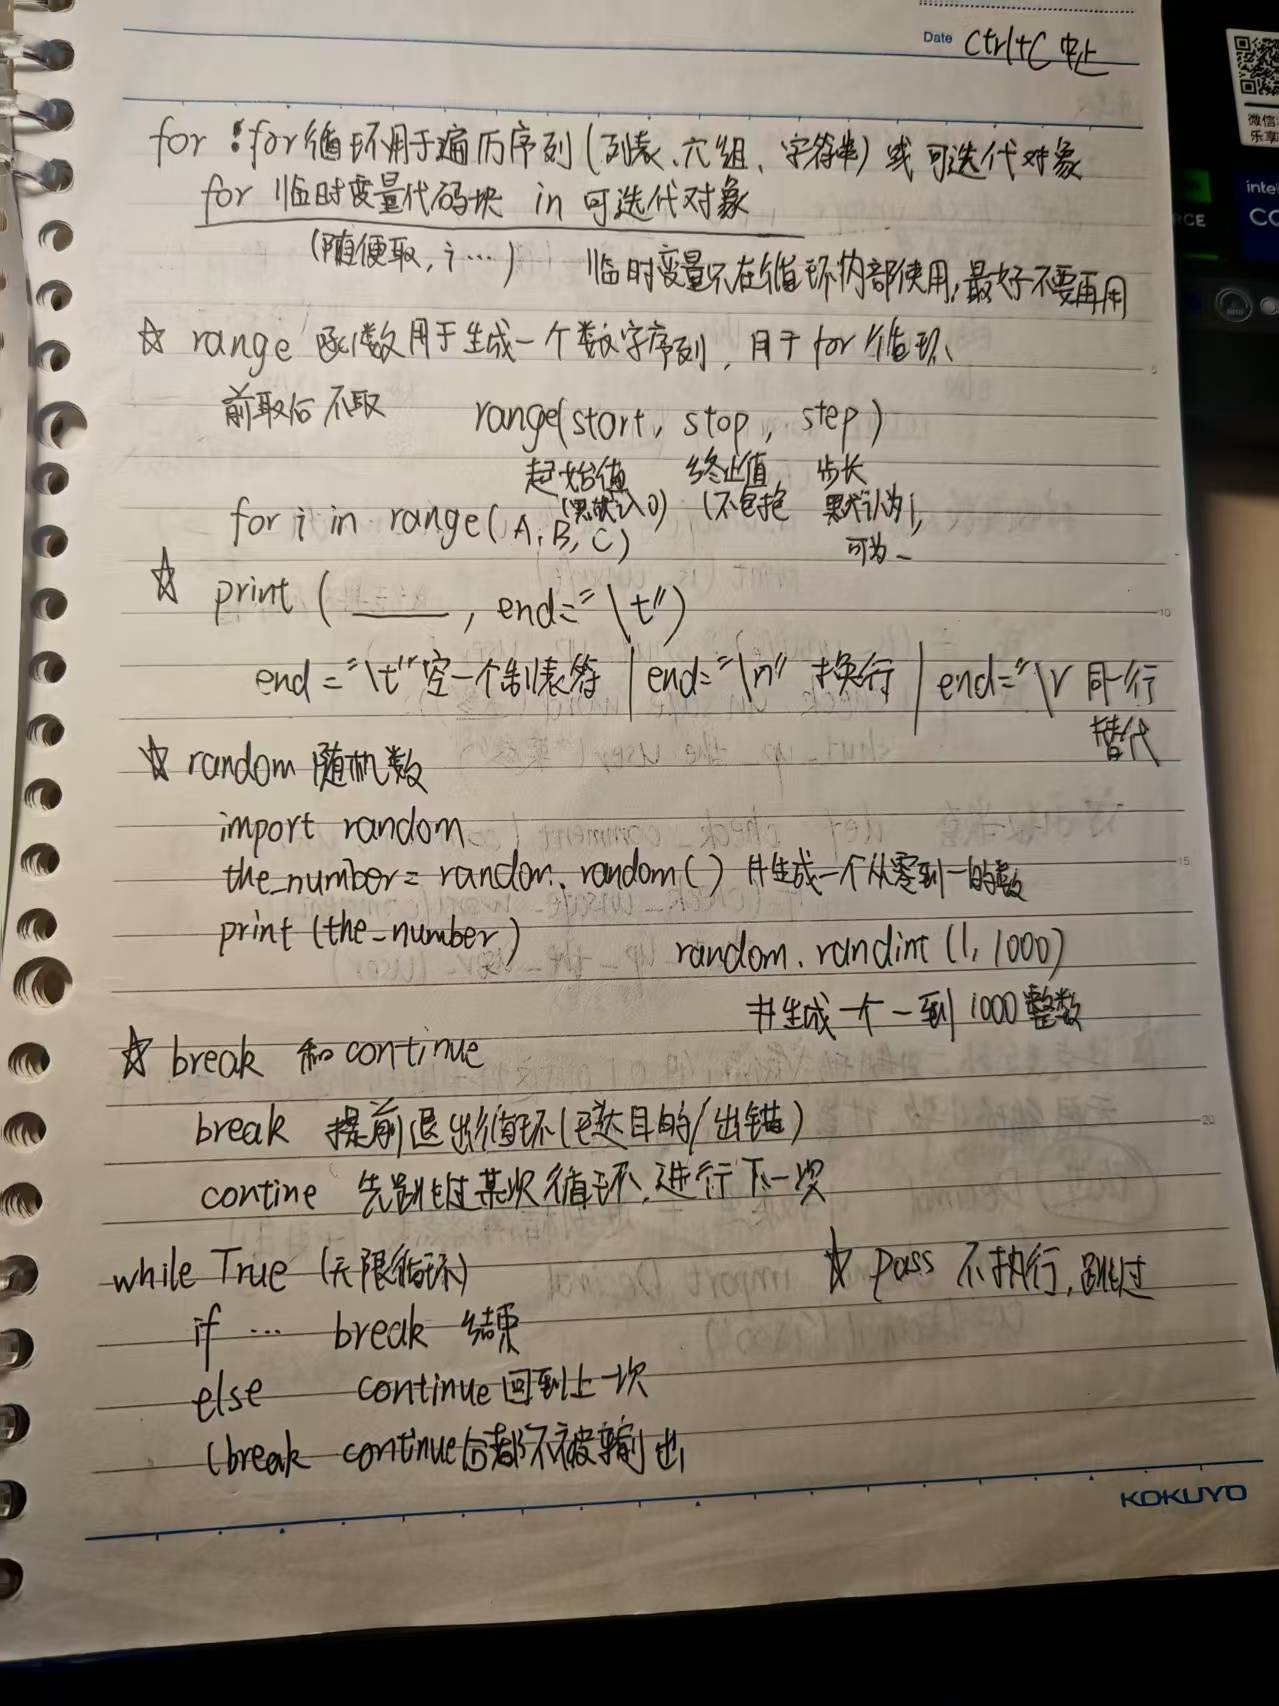 Date Ctrl+C 中止
for：for循环用于遍历序列(列表、六组、字符串)或可迭代对象
for 临时变量代码块 in 可迭代对象
(随便取, i…) 临时变量只在循环内部使用,最好不要再用
☆ range 函数用于生成一个数字序列,用于 for 循环、
前取后不取 range(start, stop, step)
起始值 终止值 步长
(默认0) (不包括 默认为1,
for i in range(A, B, C)
可为-
☆ print ( ____ , end="\t")
end="\t"空一个制表符 | end="\n" 换行 | end="\r 同一行
替代
☆ random 随机数
import random
the_number = random. random() #生成一个从零到一的数
print (the_number) random. randint (1, 1000)
#生成一个一到1000整数
☆ break 和 continue
break 提前退出循环(已达目的/出错)
contine 先跳过某次循环,进行下一次
while True (无限循环) ☆ pass 不执行,跳过
if … break 结束
else continue 回到上一次
(break continue后都不被输出
KOKUYO
微信
乐享
intel
CO
RCE